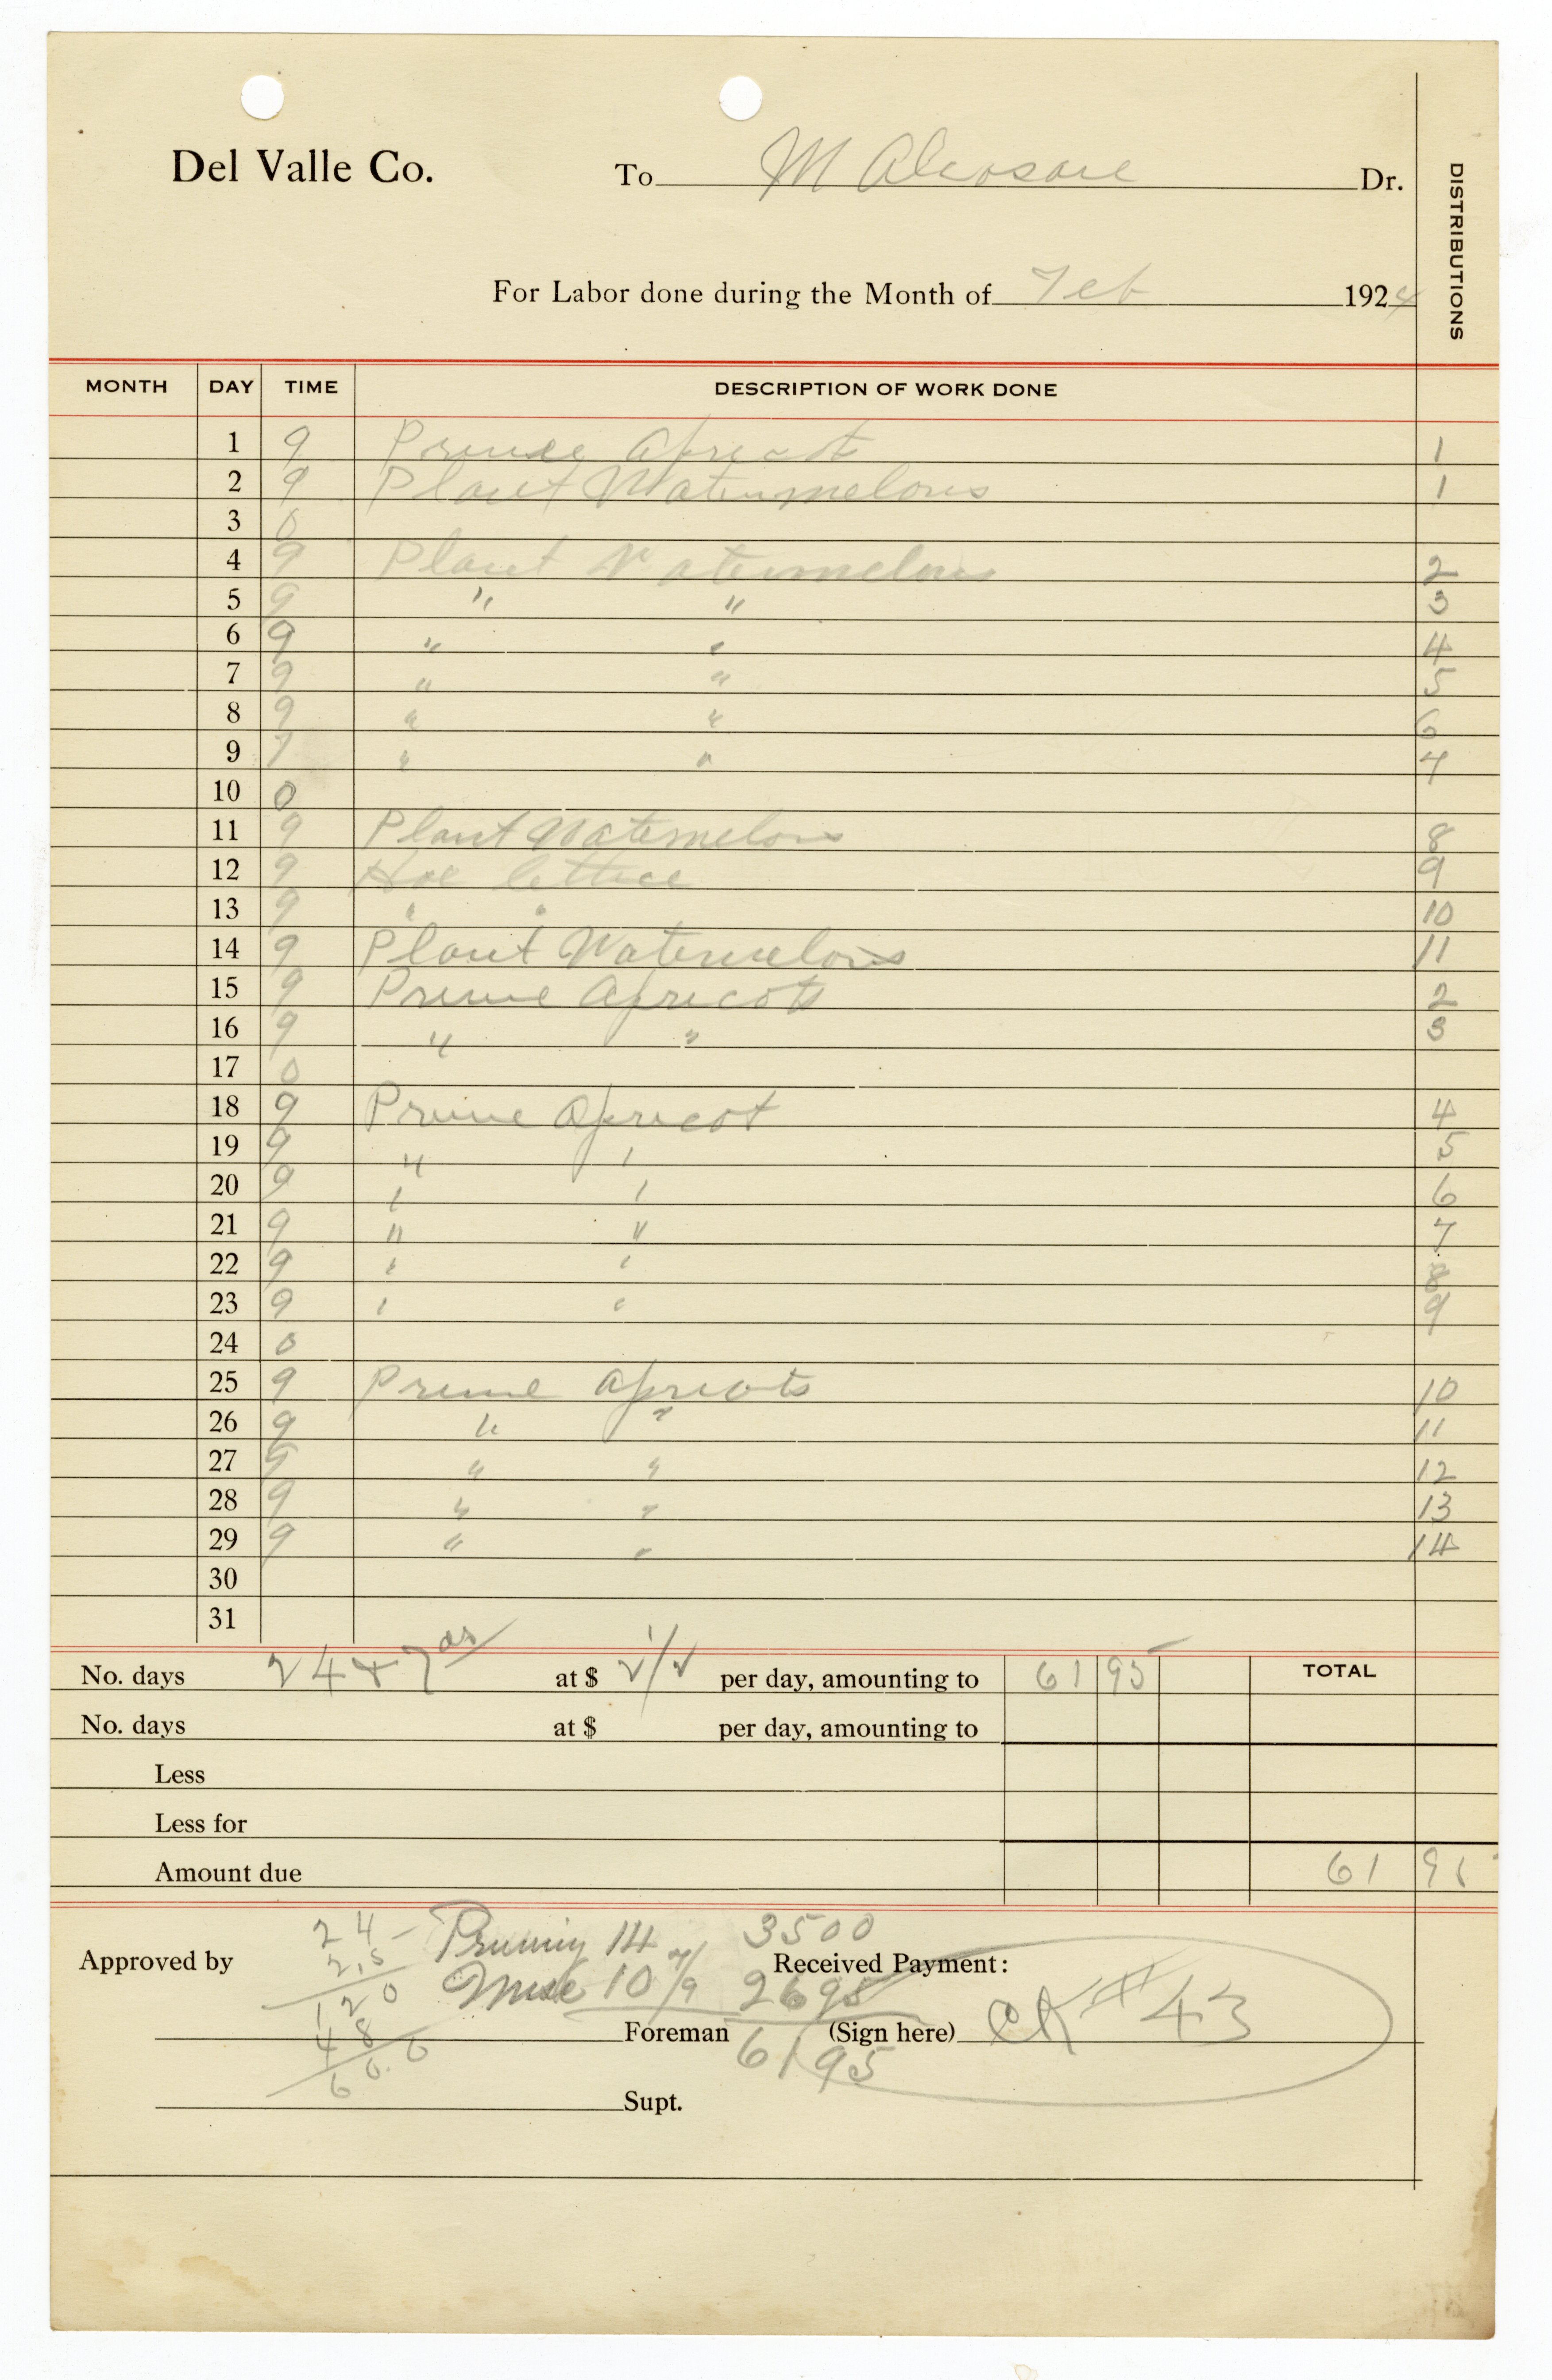 Del Valle Co. To M Dr.
DISTRIBUTIONS
For Labor done during the Month of Feb 1924
MONTH DAY TIME DESCRIPTION OF WORK DONE
1 9 Prune Apricot 1
2 9 Plant Watermelons 1
3 0
4 9 Plant Watermelons 2
5 9 " " 3
6 9 " " 4
7 9 " " 5
8 9 " " 6
9 7 " " 7
10 0
11 9 Plant Watermelons 8
12 9 Hoe lettice 9
13 9 " " 10
14 9 Plant Watermelons 11
15 9 Prune Apricots 2
16 9 " " 3
17 0
18 9 Prune Apricot 4
19 9 " " 5
20 9 " " 6
21 9 " " 7
22 9 " " 8
23 9 " " 9
24 0
25 9 Prune Apricots 10
26 9 " " 11
27 9 " " 12
28 9 " " 13
29 9 " " 14
30
31
No. days 24 + 7 at $ 2 1/2 per day, amounting to 61 95 TOTAL
No. days at $ per day, amounting to
Less
Less for
Amount due 61 95
24 - Pruning 14 3500
Approved by 2.5 10 7/9 2695 Received Payment:
120
48 Foreman 6195 (Sign here) CK # 43
60.0
Supt.